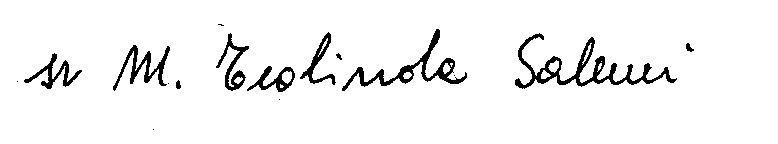 sr M. Teolinda Salemi